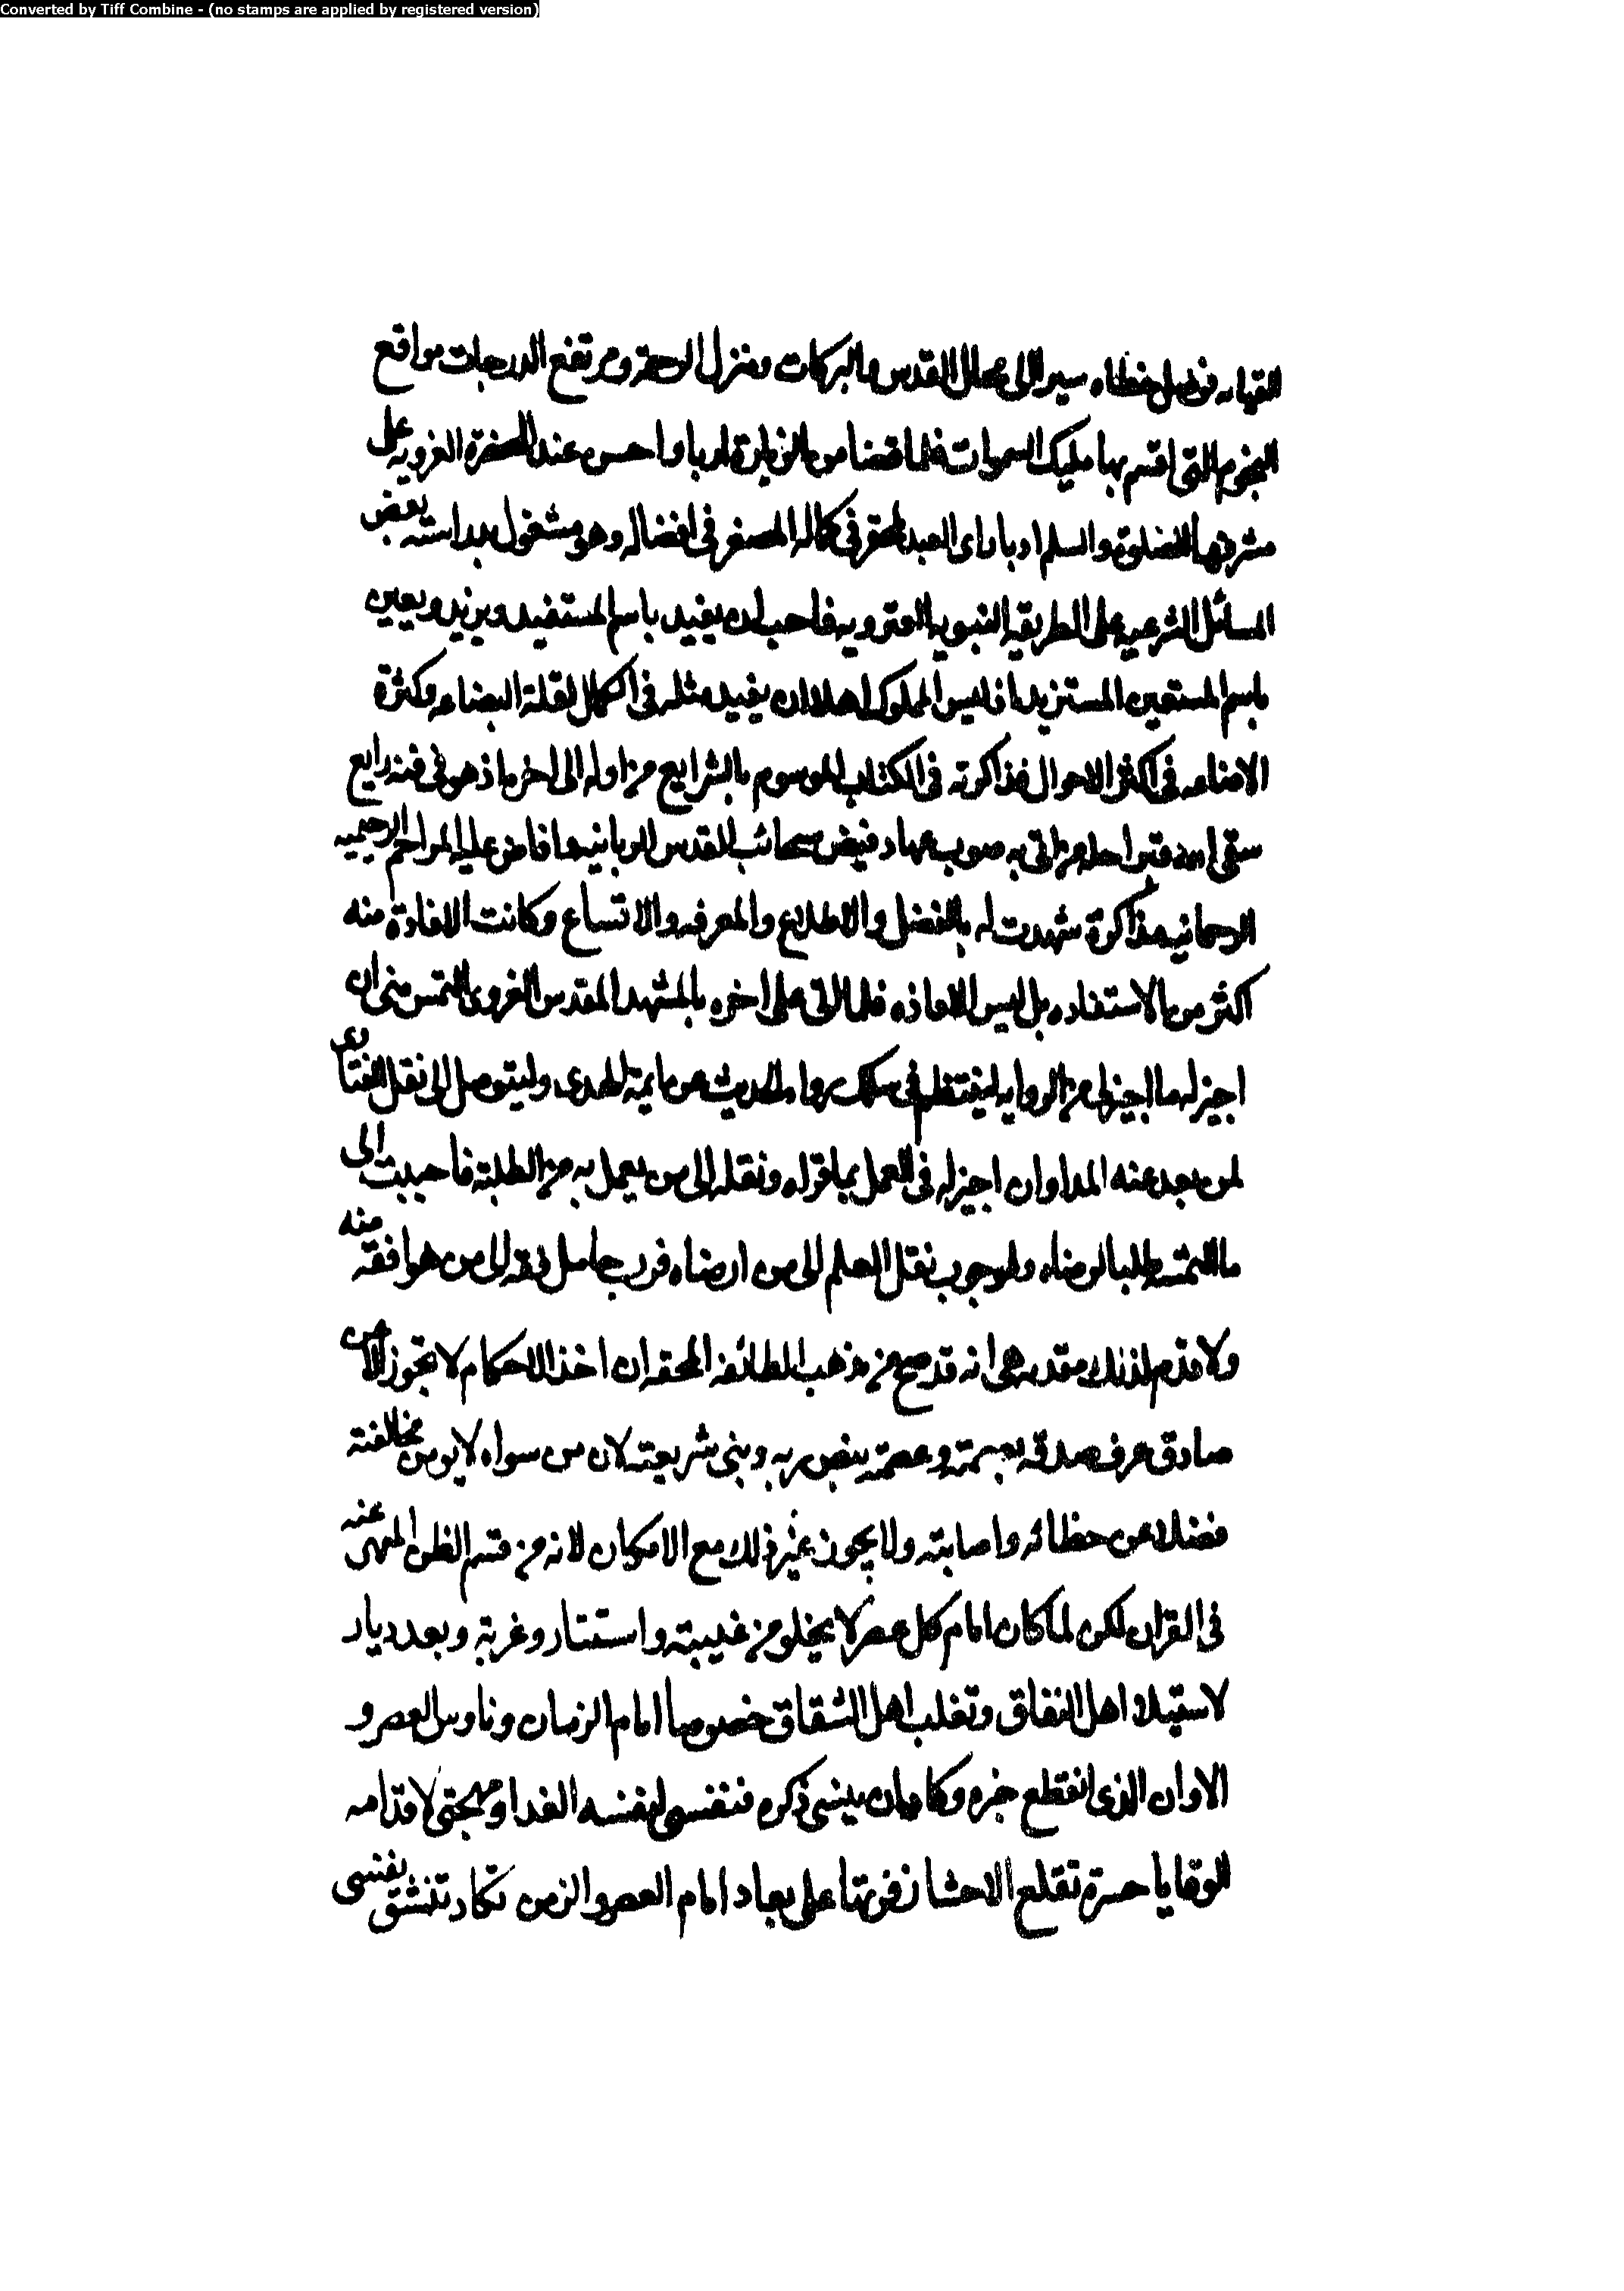 Converted by Tiff Combine - (no stamps are applied by registered version)
فوصل خطاه سيرا الى محال القدس والبركات ومنزل الرحمة ومرتفع الدرجات مواقع
النجوم التى اقسم بها مليك السموات فلما قضا من الزيارة اربا واحسن عند الحضرة الغرويه على
مشرفها الصلوة والسلم ادبا راى العبد المحقر فى كماله المصغر فى افضاله وهو مشغول بدراسته بعض
المسائل الشرعيه على الطريقه النبويه العترويه فاحب ان يفيد باسم المستفيد ويزيد ويعين
باسم المستعين المستزيد اذ ليس المملوك اهلا ان يفيد مثله فى الكمال لقلة البضاعه وكثرة
الاضاعه فى اكثر الاحوال فذاكرته فى الكتاب الموسوم بالشرايع من اوله الى اخره اذ هو فى فنه رايع
سقى الله قبرا حله من اتى به صوب عهاد فيض سحائب القدس الربانيه وافاض عليه المراحم الرحيميه
الرحمانيه مذاكرة شهدت له بالفضل والاطلاع والمعرفه والاتساع وكانت الافادة منه
اكثر من الاستفاده بل ليس الا افاده فلما اتى على اخره بالمشهد المقدس الغروى التمس منى ان
اجيز له ما اجيز لى من الروايه لينتظم فى سلك رواه الحديث عن ايمة الهدى وليتوصل الى نقل الفتاوى
لمن بعد عنه المدا وان اجيز له فى العمل بما اقوله ونقله الى من يعمل به من الطلبته فاجبت الى
ما التمسه طلبا لرضاه ولوجوب نقل العلم الى من ارضاه فرب حامل فقه الى من هو افقه منه
ولاقدم لذلك مقدمه هى انه قد صح من مذهب الطائفه المحقه ان اخذ الاحكام لا يجوز الا من
صادق عرف صدقه وعصمته بنص ربه ونبى شريعته لان من سواه لا يومن مخالفته
فضلا عن خطائه واصابته ولا يجوز غير ذلك مع الامكان لانه من قسم الظن المنهى عنه
فى القران لكن لما كان امام كل عصر لا يخلو من غيبته واستتار وغربة وبعد ديار
لاستيلاء اهل النفاق وتغلب اهل الشقاق خصوصا امام الزمان وناوس العصر و
الاوان الذى انقطع خبره وكاد ان ينسى ذكره فنفسى لنفسه الفدا ومهجتى لاقدامه
الوقا يا حسرة تقلع الاحشا زفرتها على بعاد امام العصر والزمن تكاد تنشق نفسى